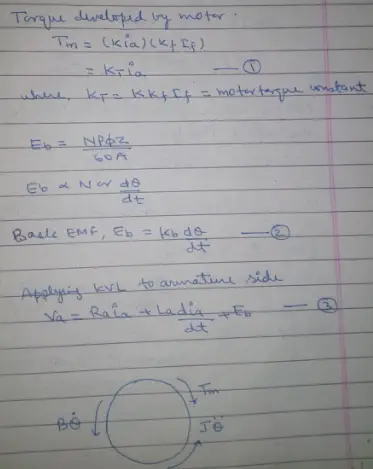 Torque developed by motor.
Tm = (Kia)(Kf If)
= KT ia —— ①
where, KT = K Kf If = motor torque constant
Eb = NPφZ / 60A
Eb ∝ N or dθ/dt
Back EMF, Eb = Kb dθ/dt —— ②
Applying KVL to armature side
Va = Raia + La dia/dt + Eb —— ③
Tm
Bθ̇ Jθ̈